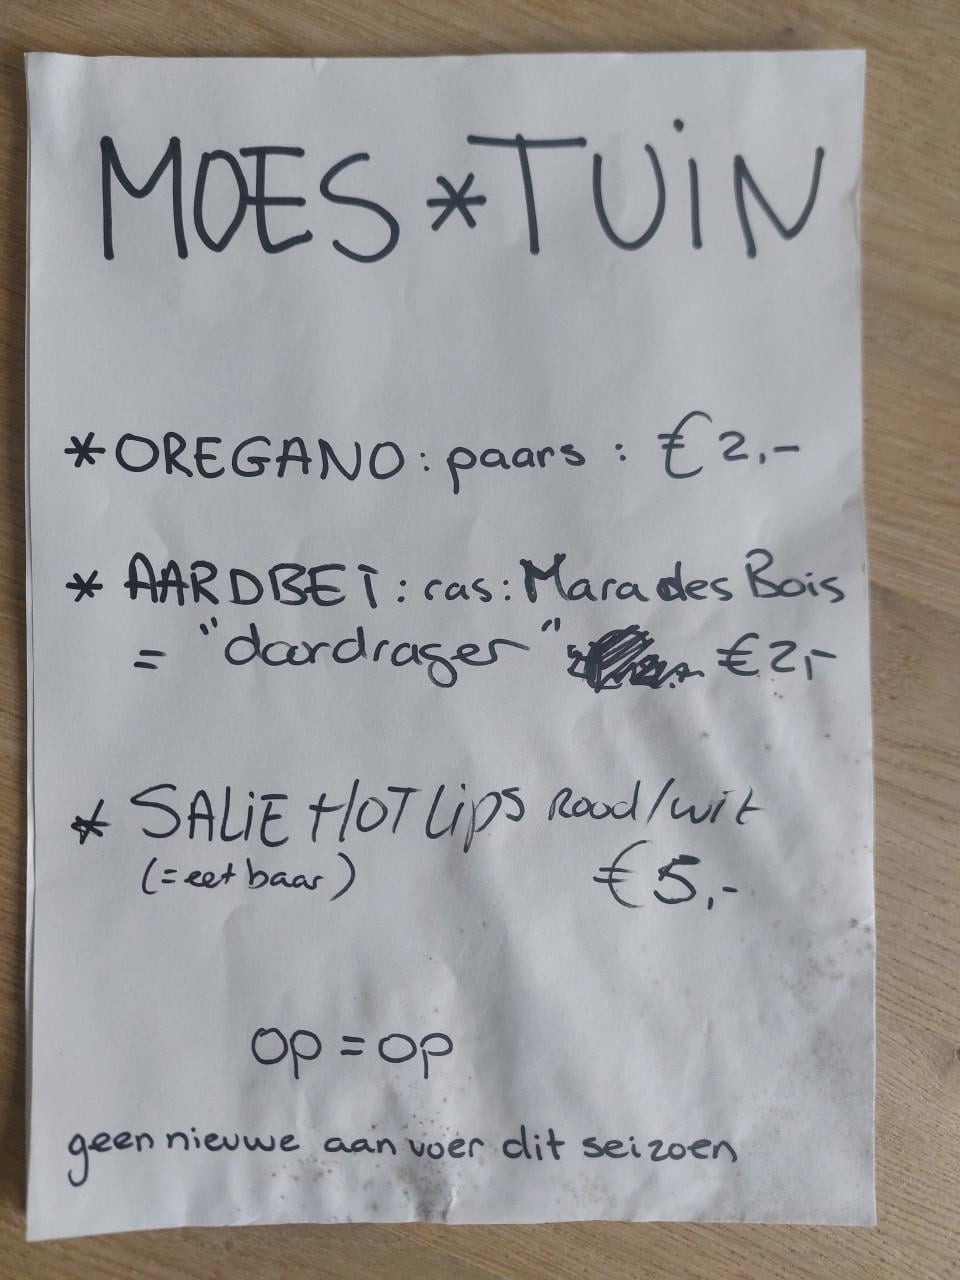 MOES * TUiN
* OREGANO : paars : € 2,-
* AARDBEI : ras : Mara des Bois
= "doordrager" € 2,-
* SALiE HOT Lips Rood/wit
(= eetbaar) € 5,-
op = op
geen nieuwe aanvoer dit seizoen